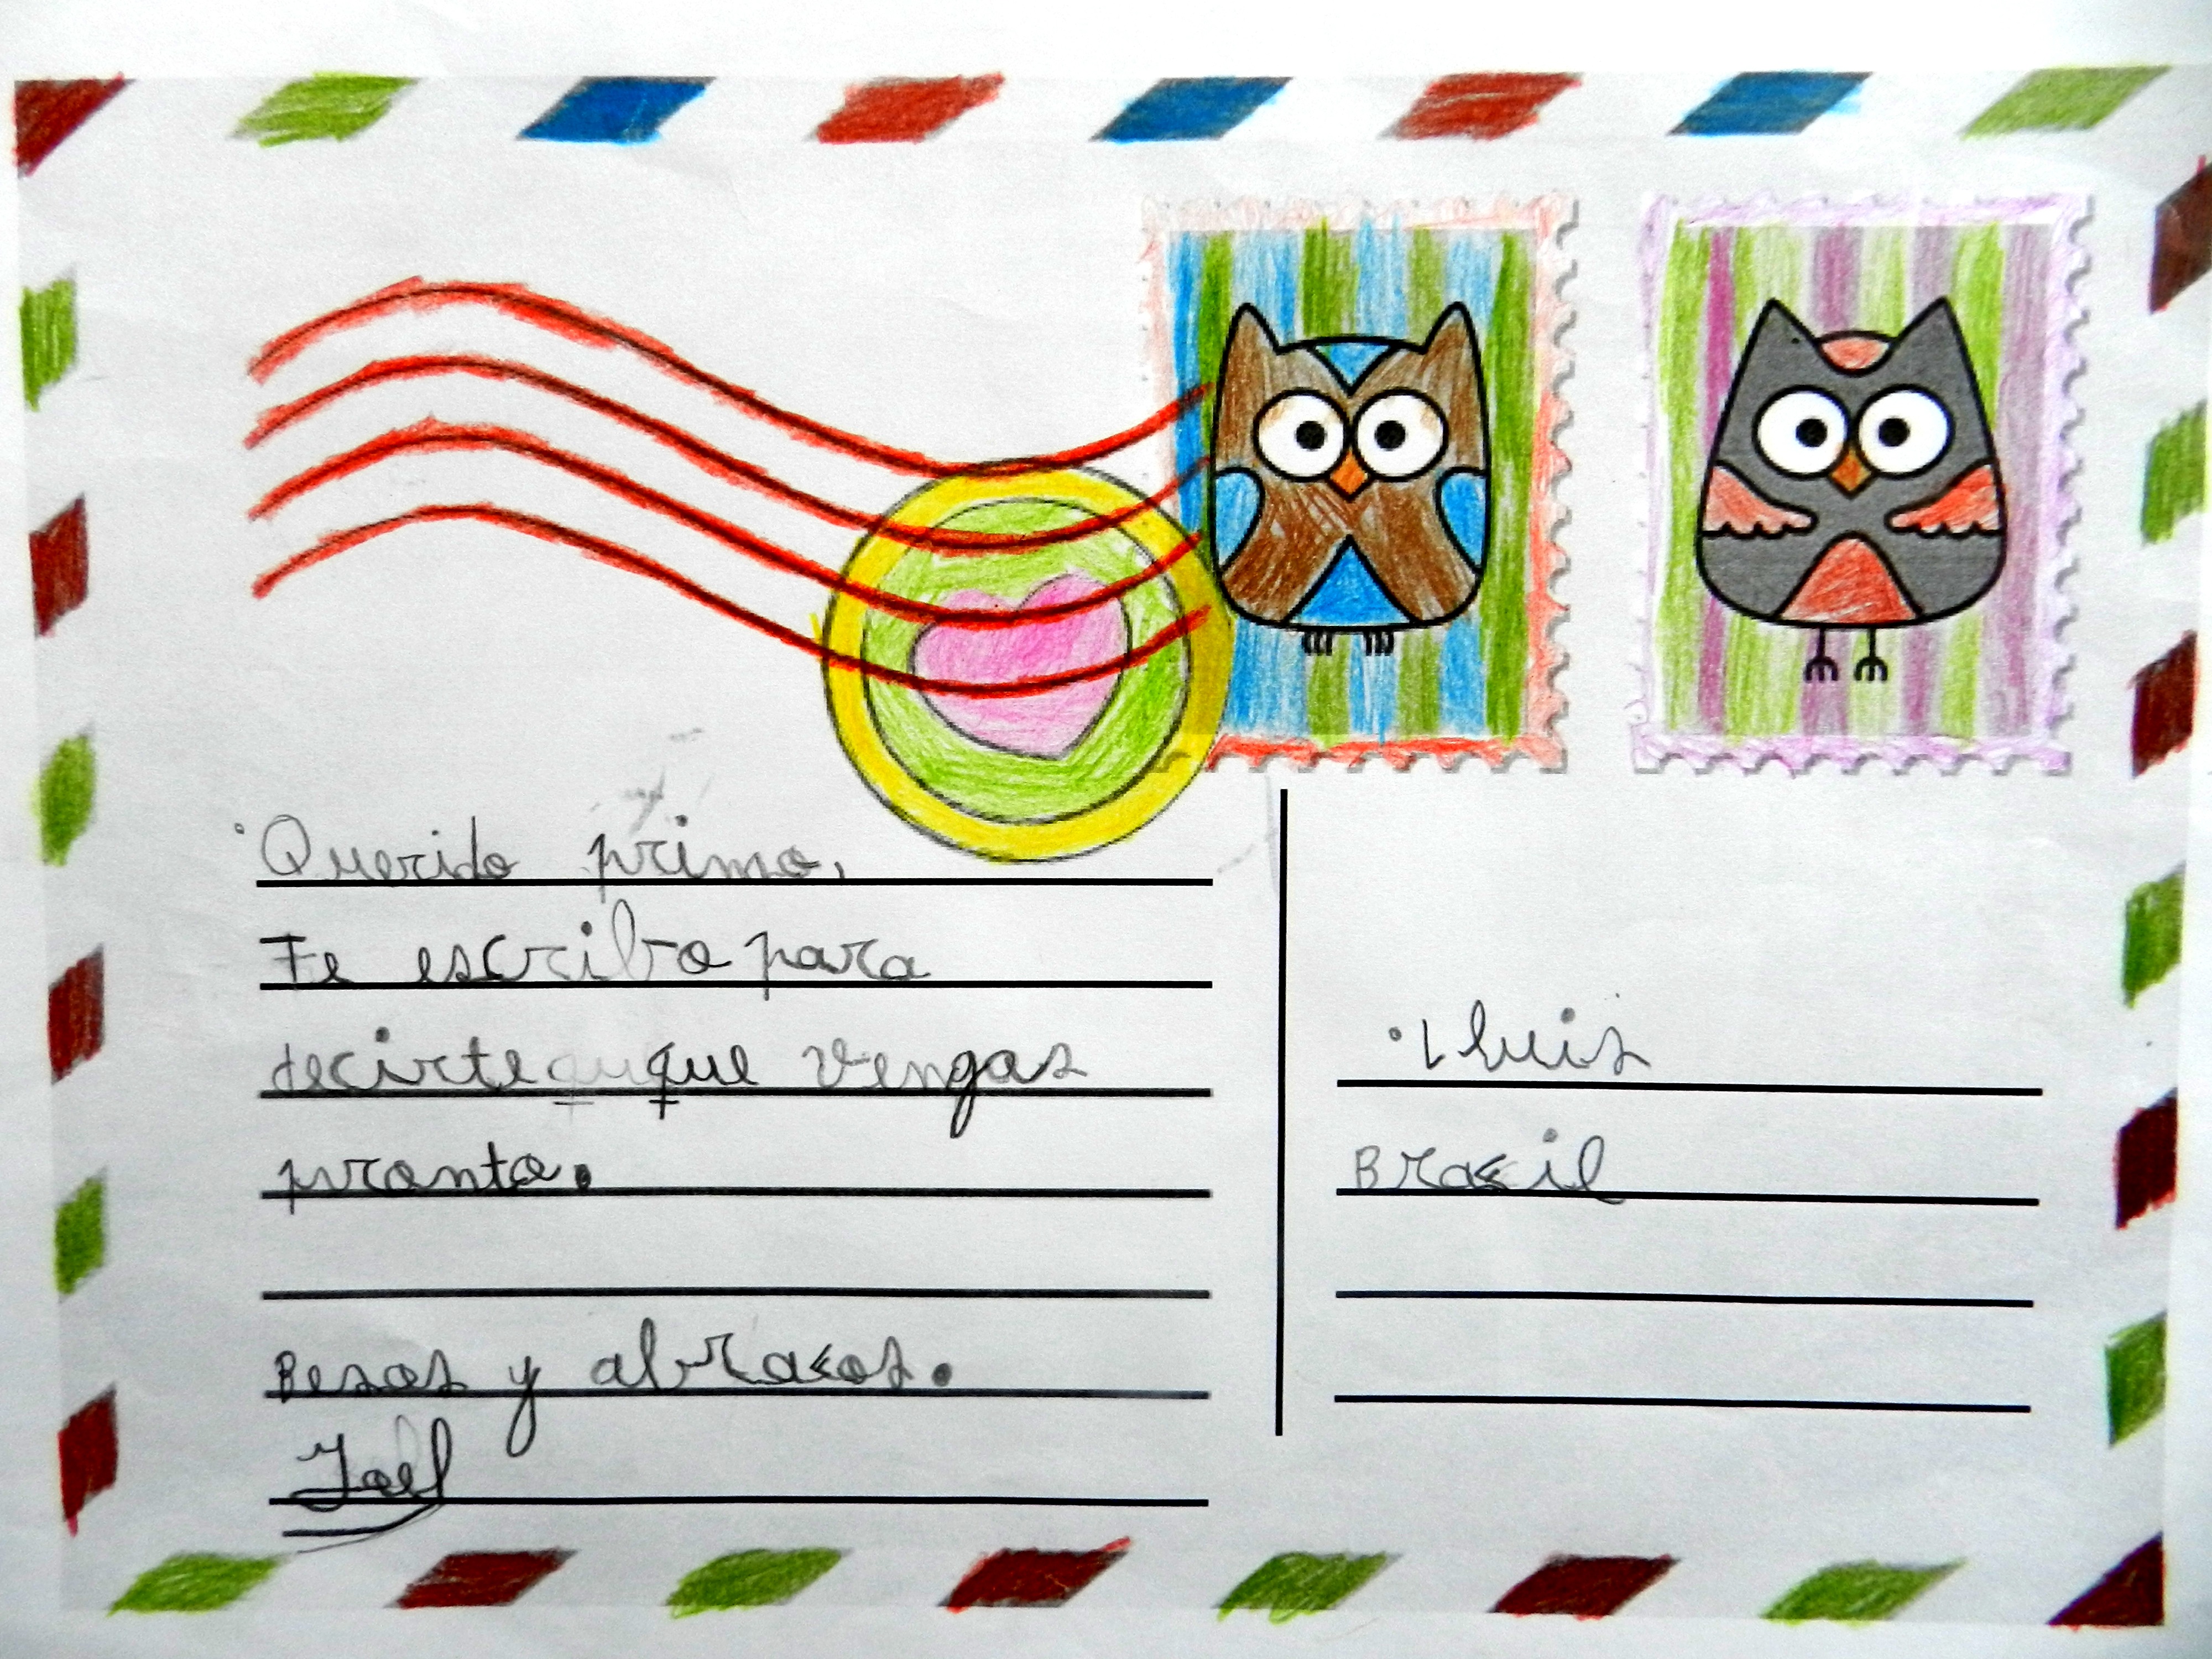 Querido primo,
Te escribo para
decirte que vengas
pronto.
Besos y abrazos.
Joel
Lluis
Brasil